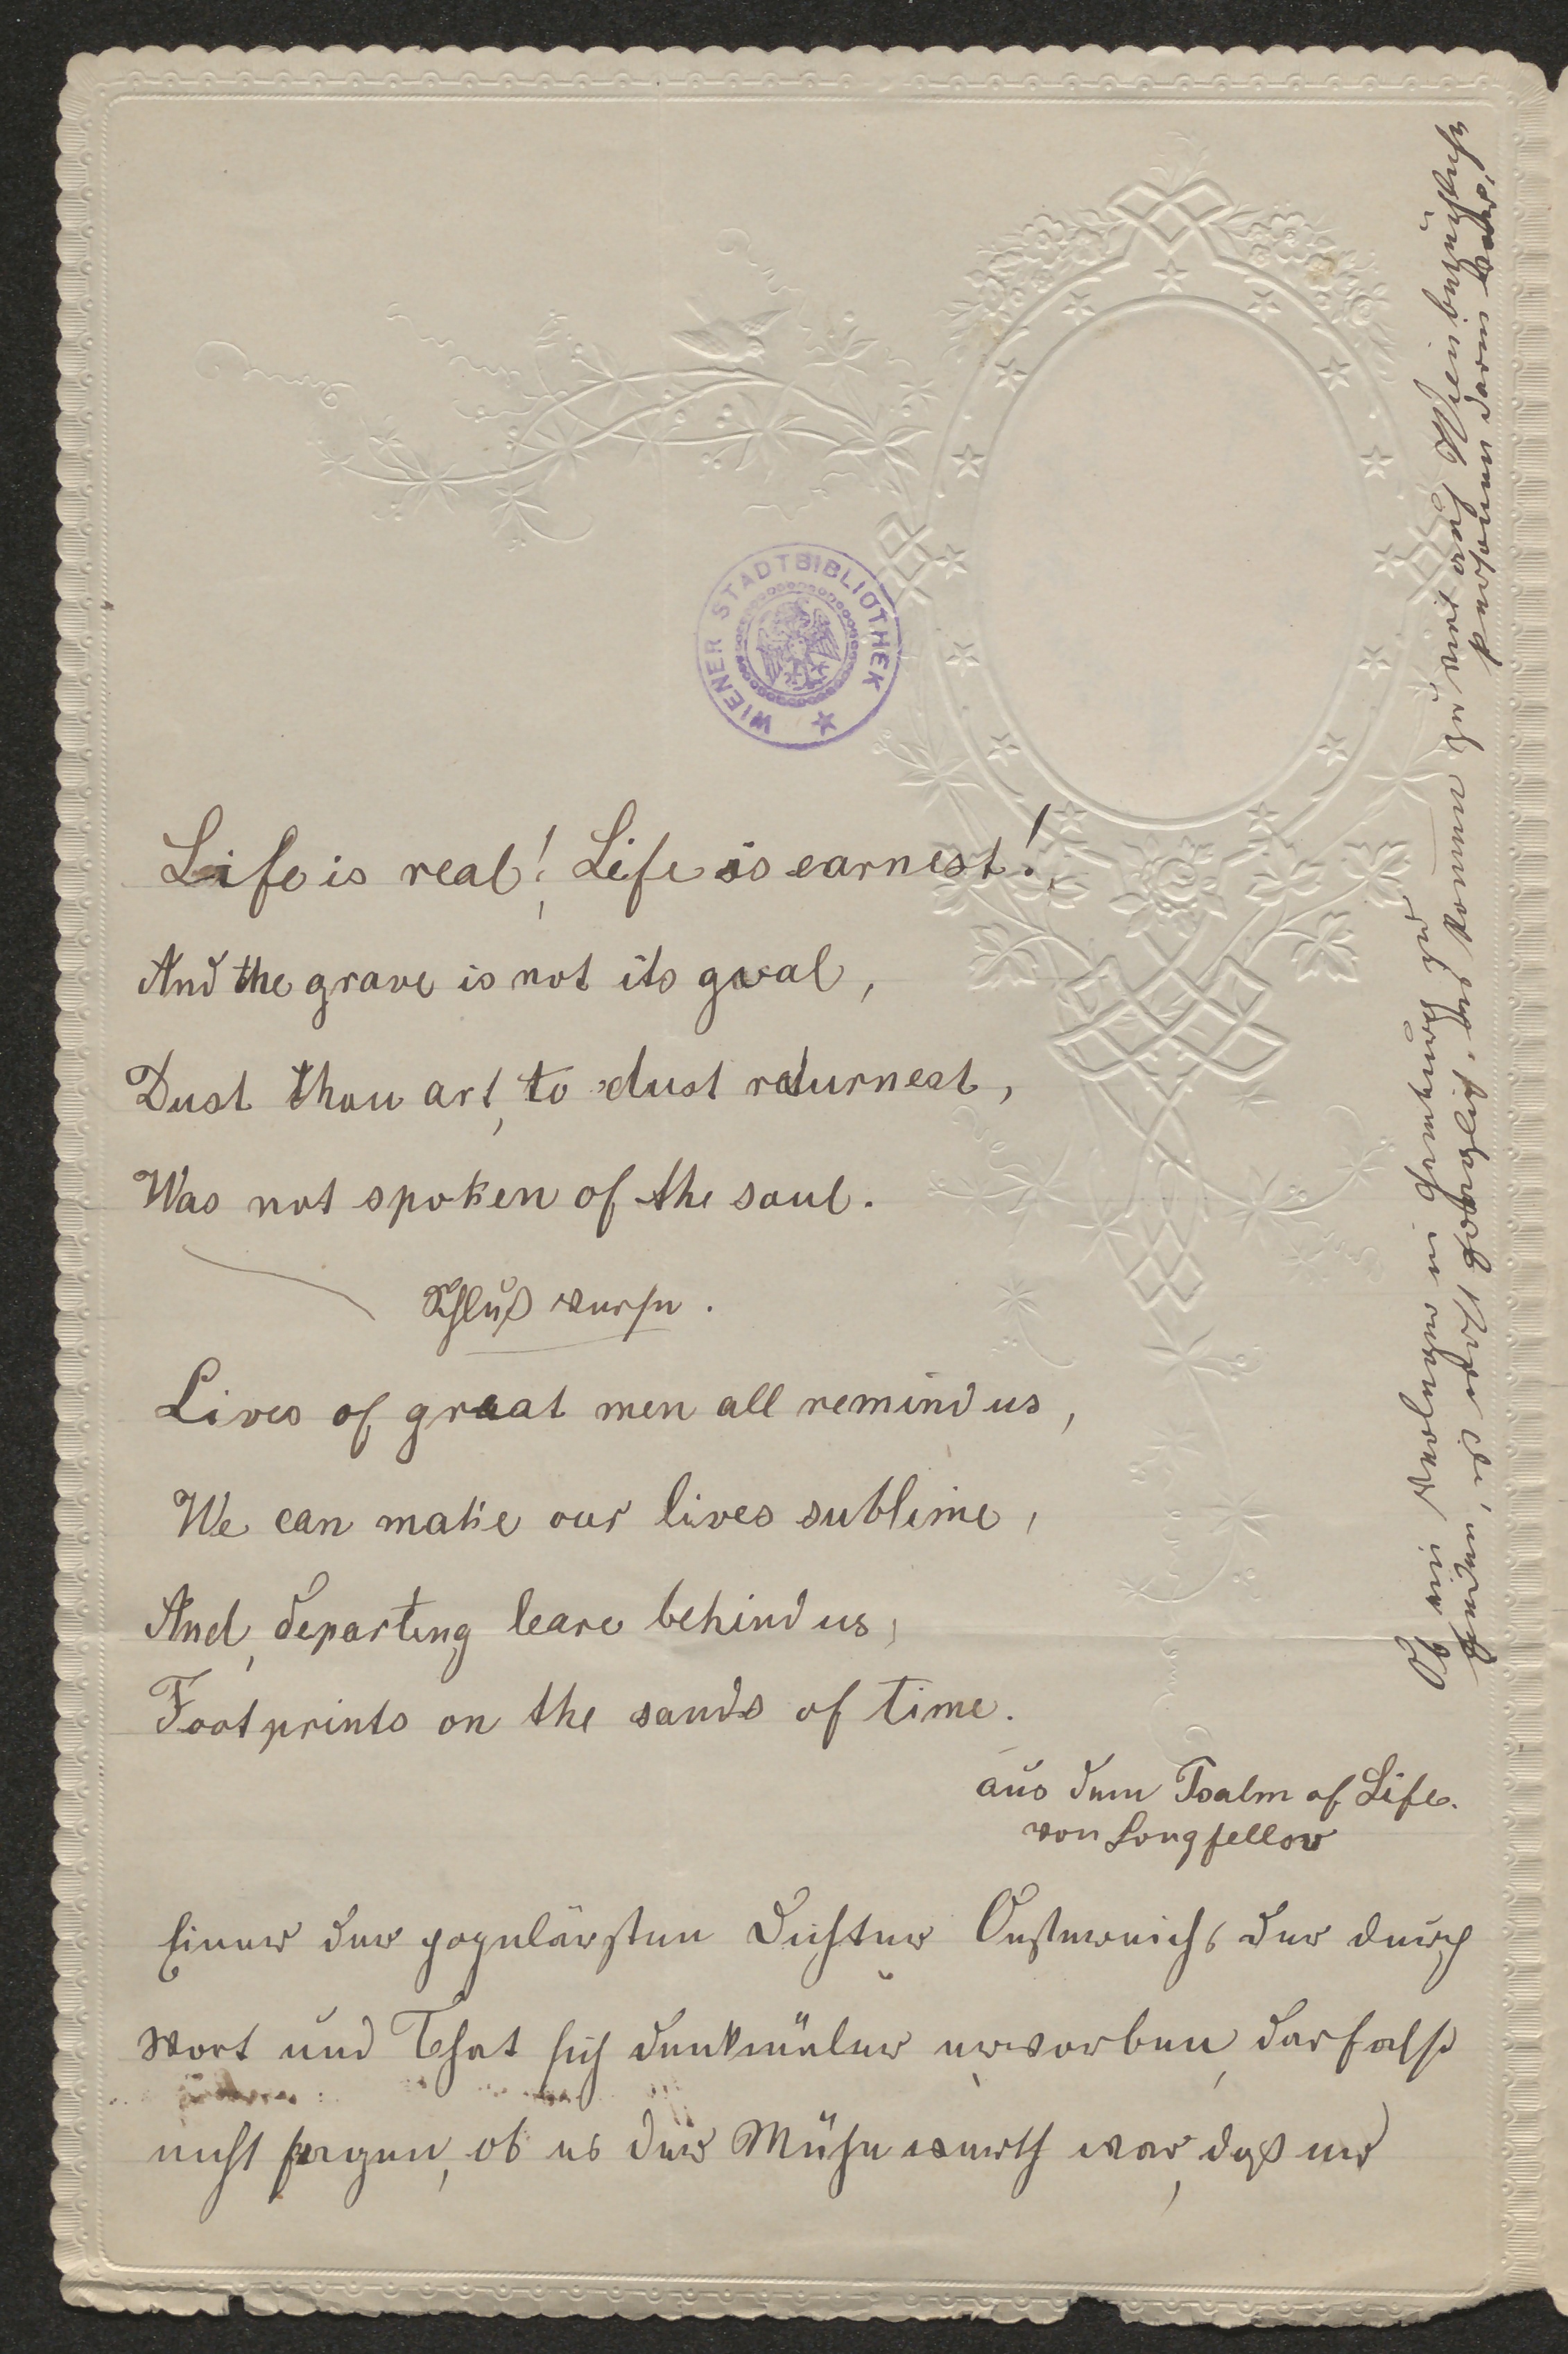 WIENER STADTBIBLIOTHEK
Life is real! Life is earnest!
And the grave is not its goal,
Dust thou art, to dust returnest,
Was not spoken of the soul.
Schluß verse.
Lives of great men all remind us,
We can make our lives sublime,
And, departing leave behind us,
Footprints on the sands of time.
aus dem Psalm of Life.
von Longfellow
Einer der populärsten Dichter Oesterreichs der durch
Wort und That sich Denkmäler erworben, darf also
nicht fragen, ob es der Mühe werth war, daß er
Ob ein Verleger in Hamburg zu
finden, ist nicht fraglich. Es kommen zu viel auf Wien bezügliche
Personen darin vor,